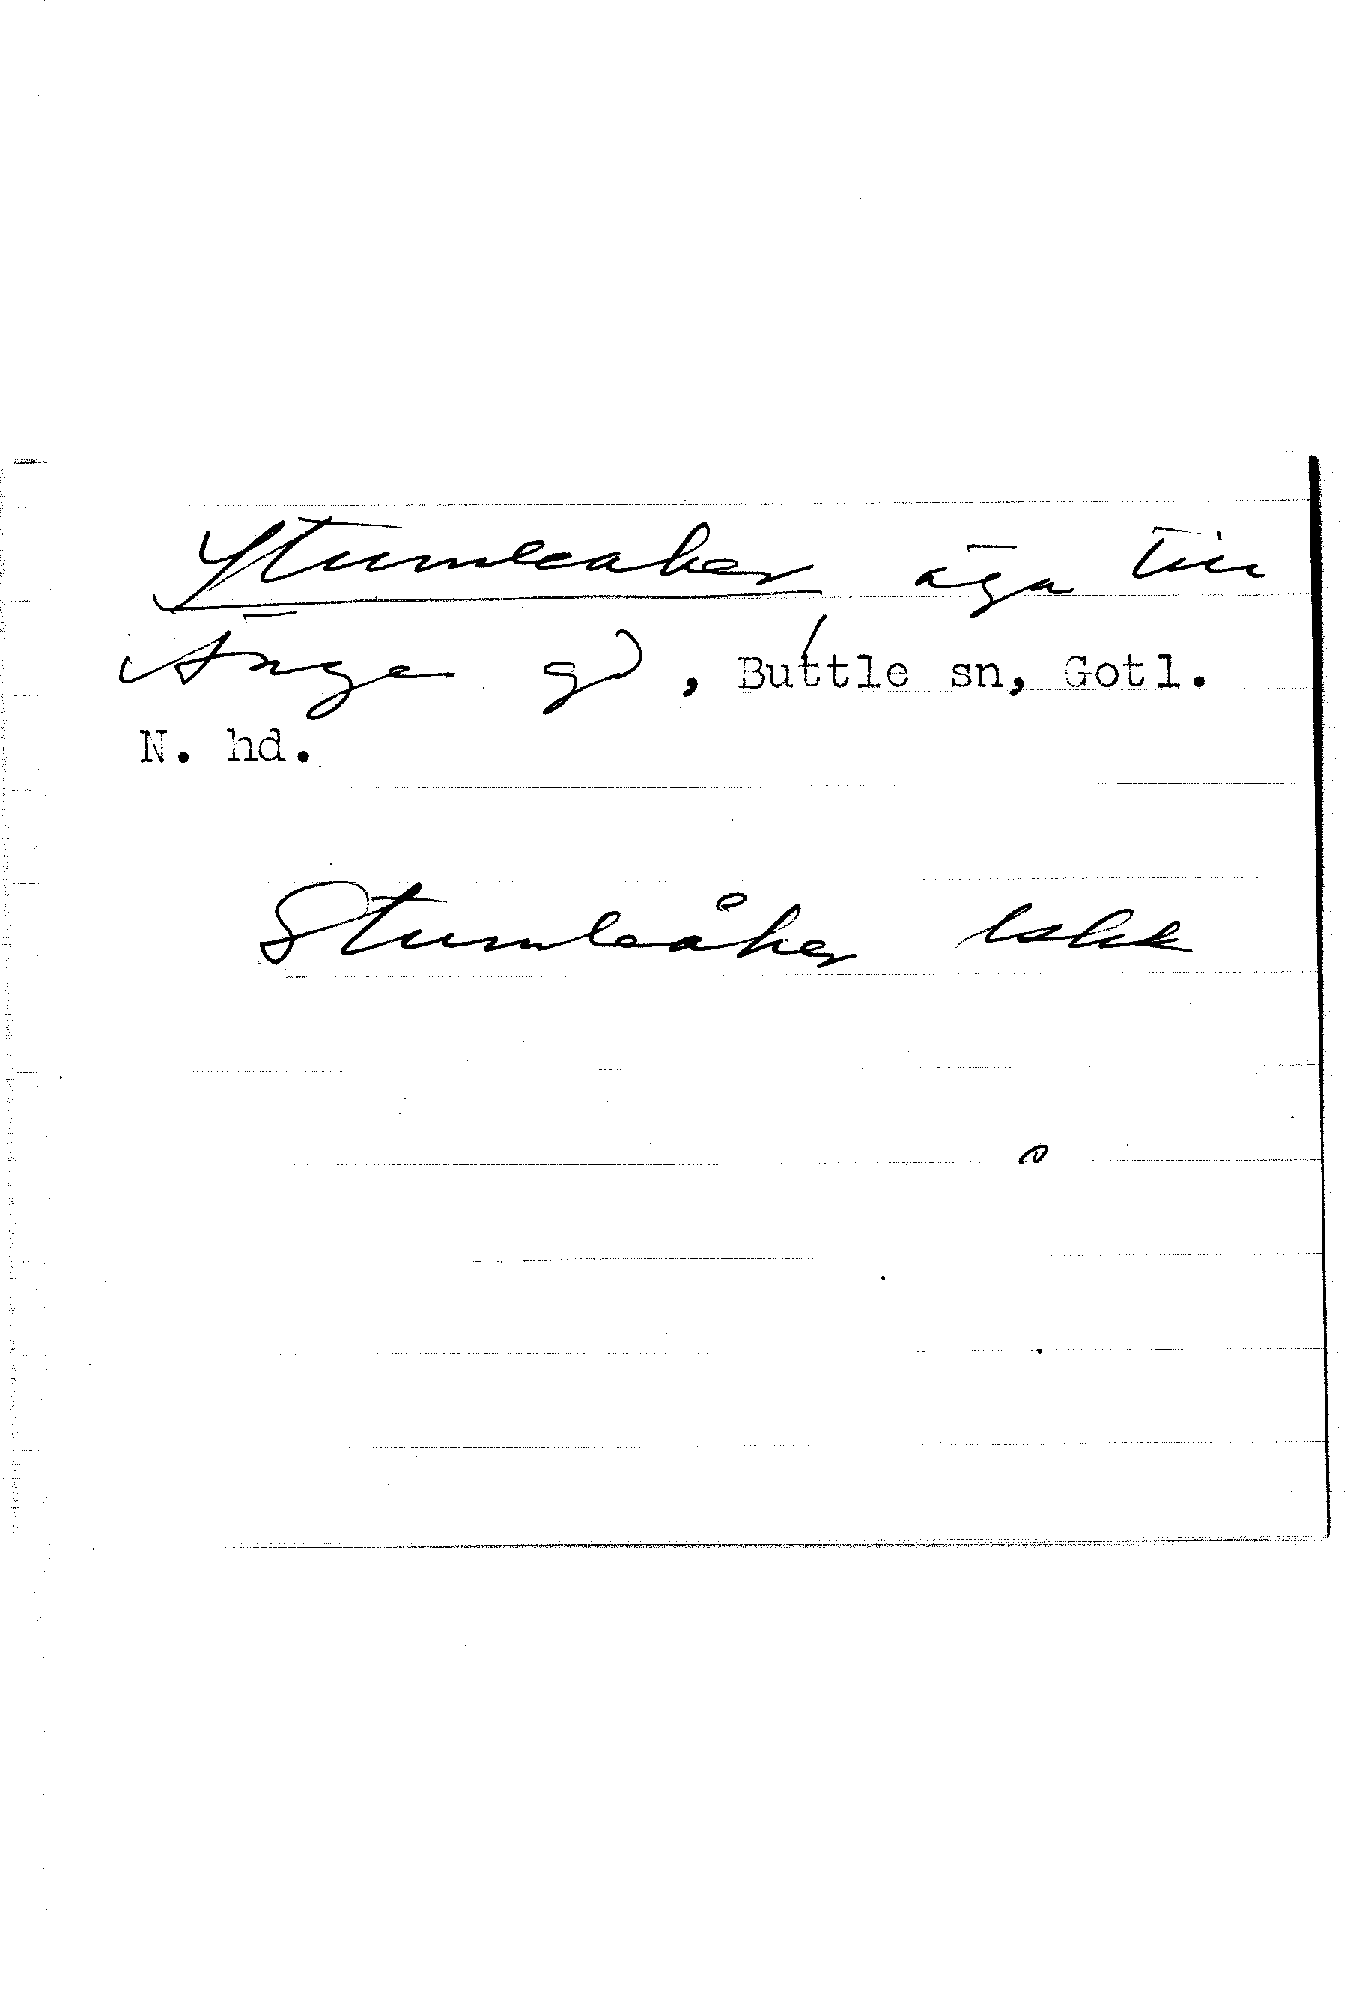 Stumleaker äga till
Änge gd, Buttle sn, Gotl.
N. hd.
Stumleåker